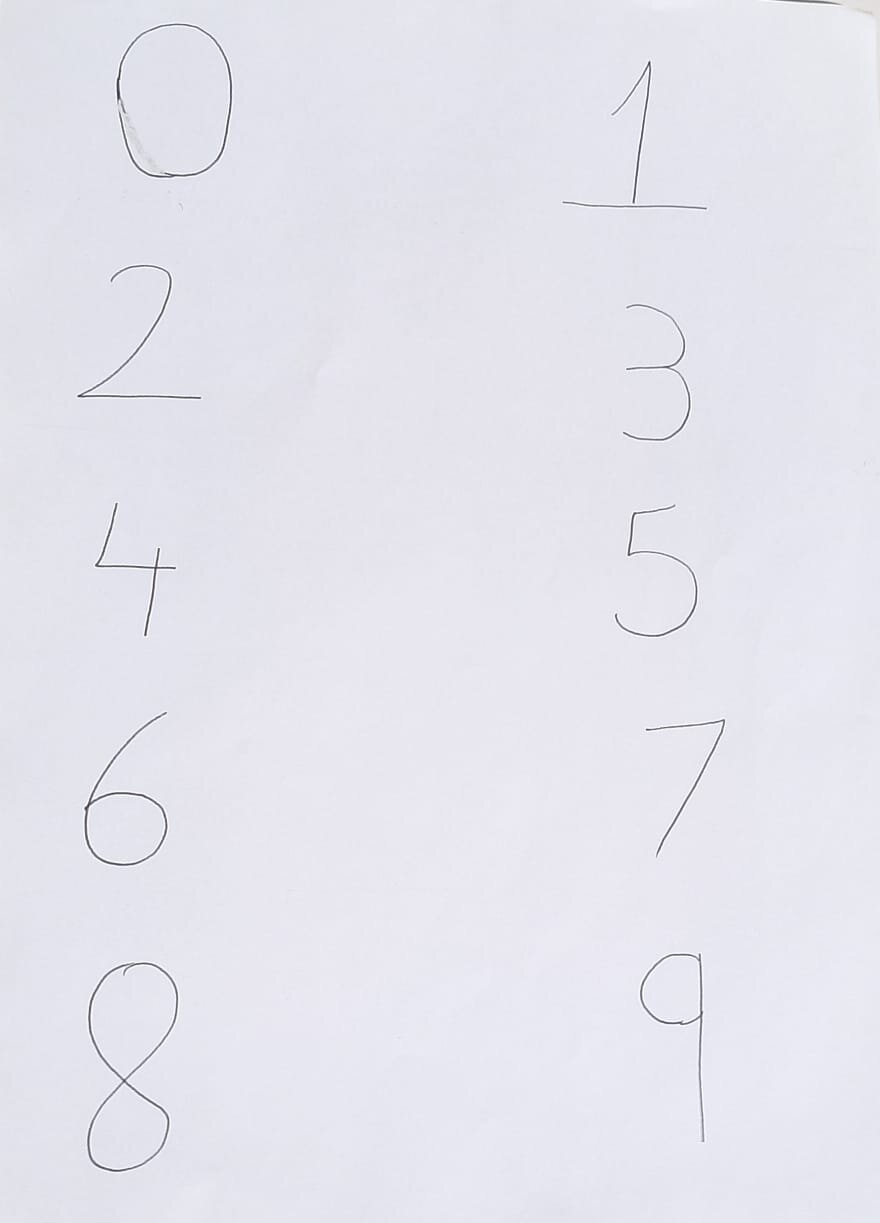 0 1
2 3
4 5
6 7
8 9